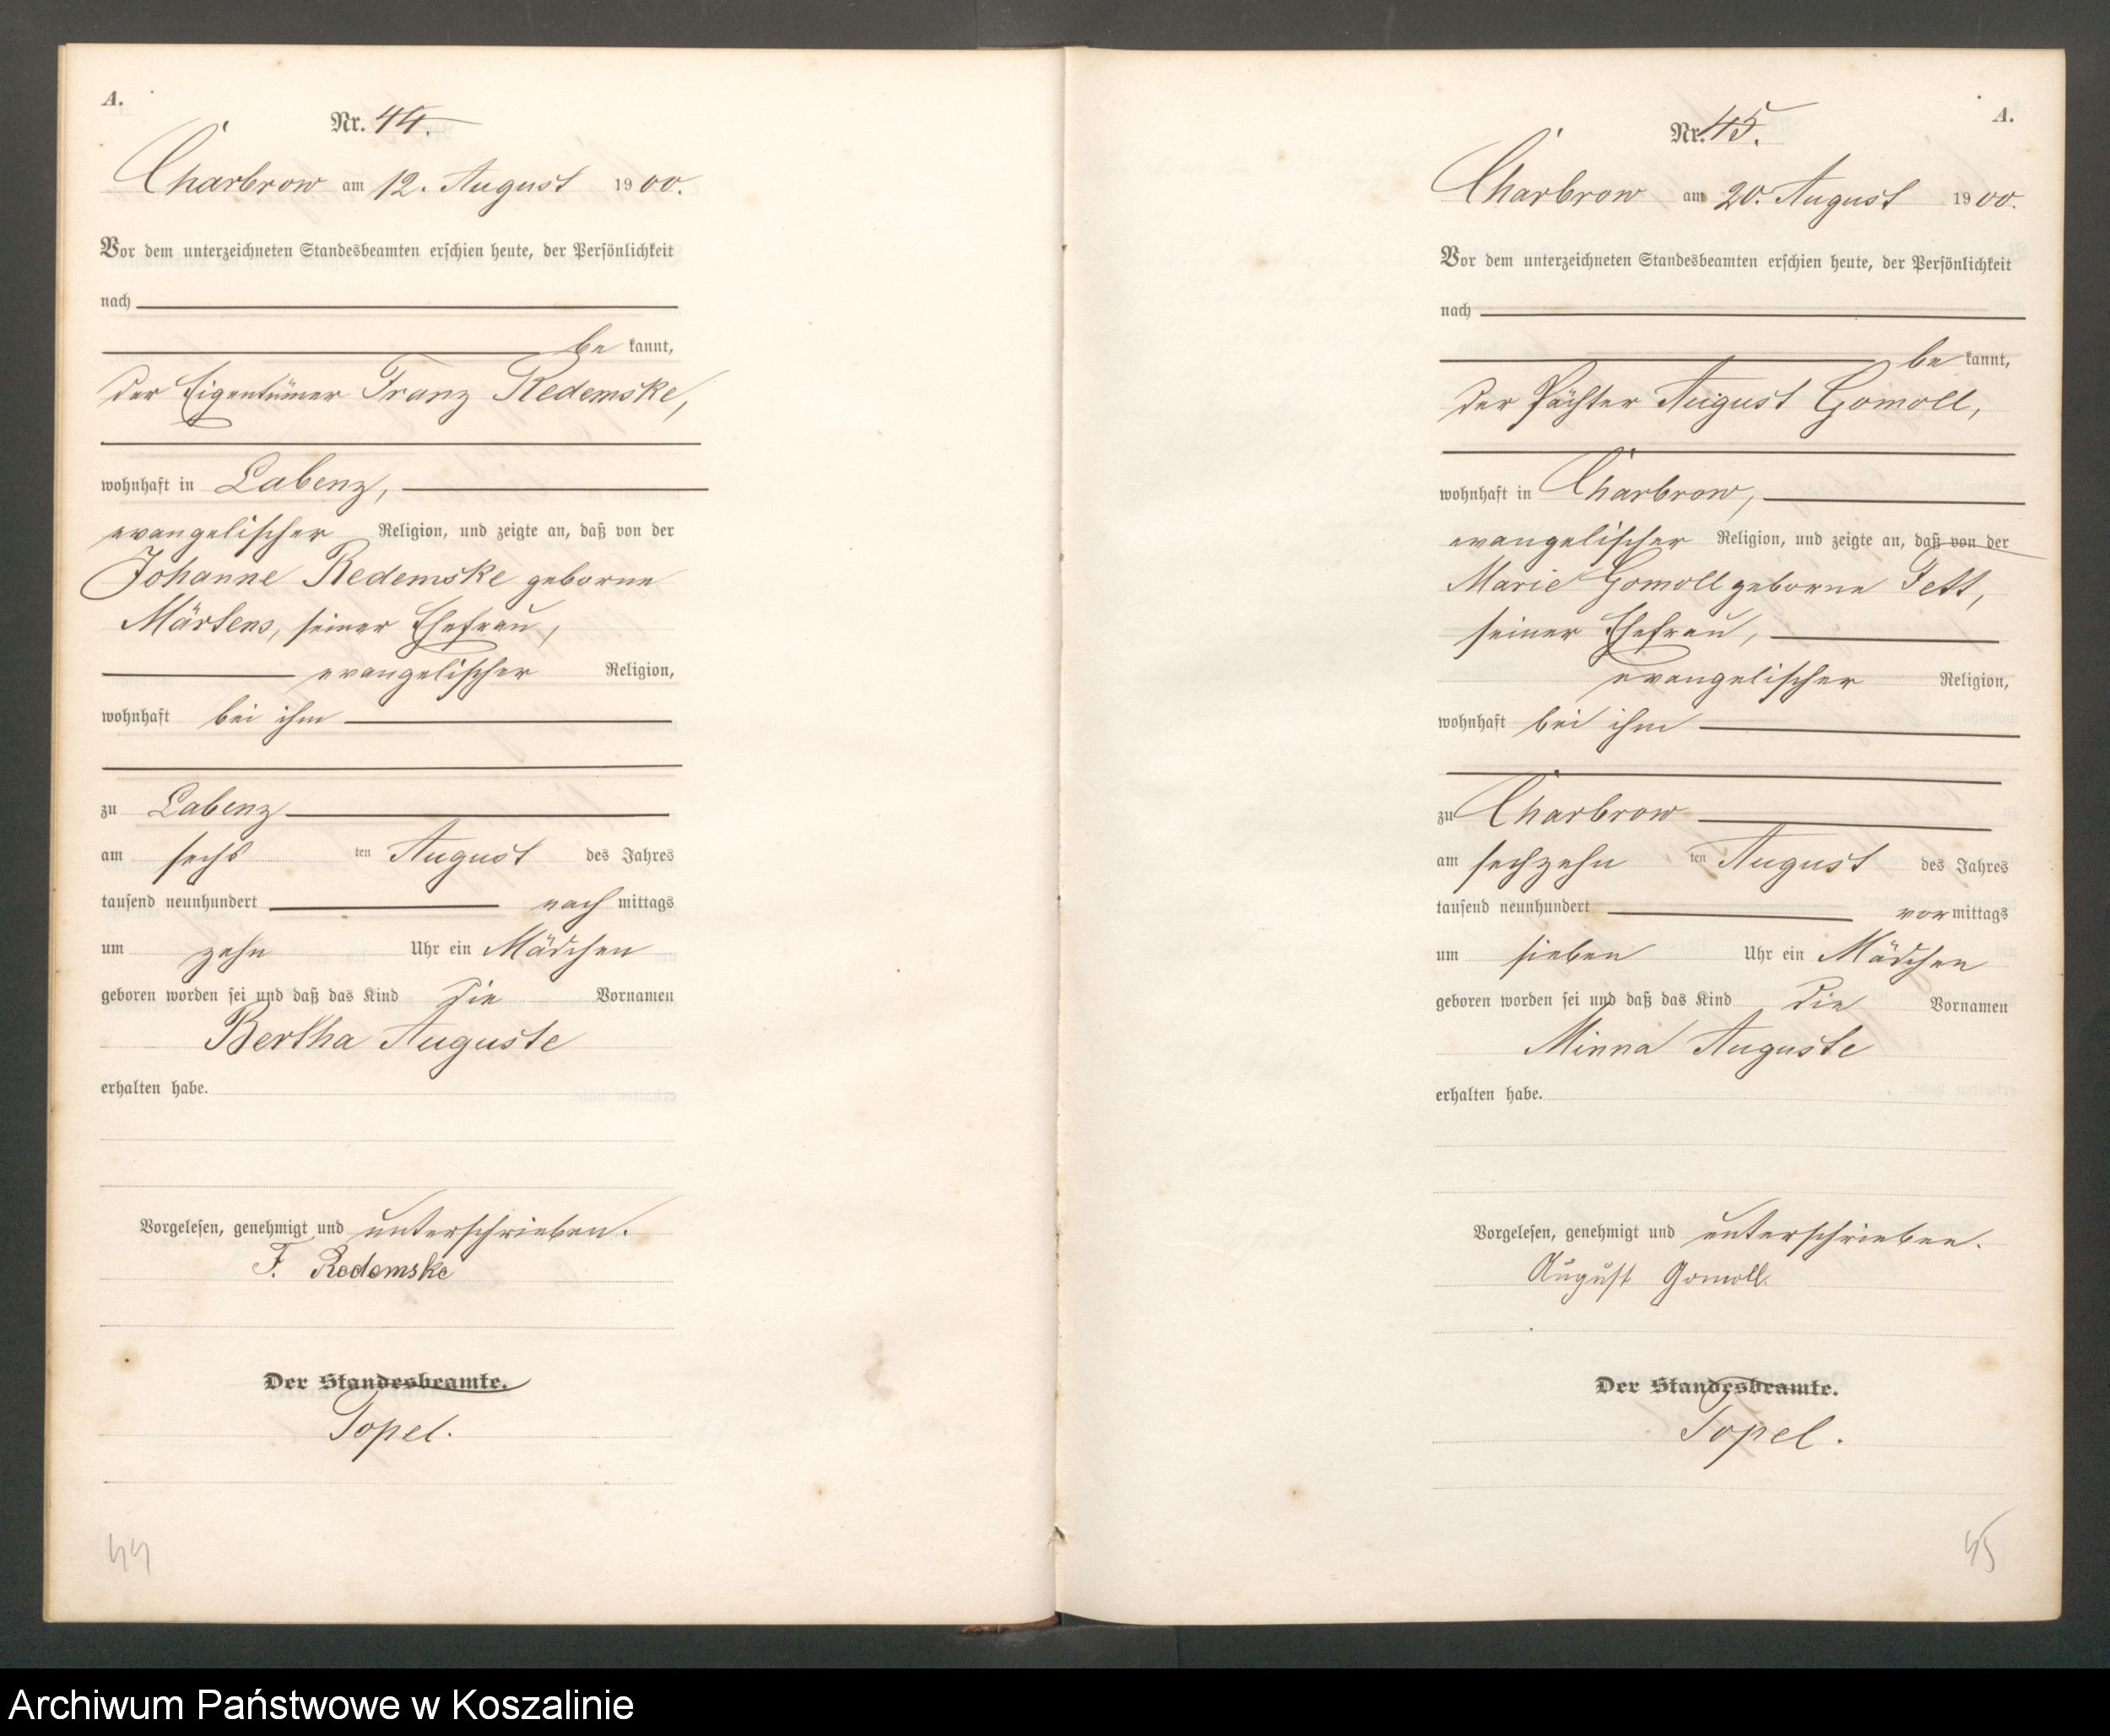 A.
Nr. 44.
Charbrow am 12. August 1900.
Vor dem unterzeichneten Standesbeamten erschien heute, der Persönlichkeit
nach
be kannt,
der Eigentümer Franz Redemske,
wohnhaft in Labenz,
evangelischer Religion, und zeigte an, daß von der
Johanne Redemske geborne
Märtens, seiner Ehefrau,
evangelischer Religion,
wohnhaft bei ihm
zu Labenz
am sechs ten August des Jahres
tausend neunhundert nach mittags
um zehn Uhr ein Mädchen
geboren worden sei und daß das Kind die Vornamen
Bertha Auguste
erhalten habe.
Vorgelesen, genehmigt und unterschrieben.
F. Redemske
Der Standesbeamte.
Topel.
44
A.
Nr. 45.
Charbrow am 20. August 1900.
Vor dem unterzeichneten Standesbeamten erschien heute, der Persönlichkeit
nach
be kannt,
der Pächter August Gomoll,
wohnhaft in Charbrow,
evangelischer Religion, und zeigte an, daß von der
Marie Gomoll geborne Fett,
seiner Ehefrau,
evangelischer Religion,
wohnhaft bei ihm
zu Charbrow
am sechzehn ten August des Jahres
tausend neunhundert vor mittags
um sieben Uhr ein Mädchen
geboren worden sei und daß das Kind die Vornamen
Minna Auguste
erhalten habe.
Vorgelesen, genehmigt und unterschrieben.
August Gomoll.
Der Standesbeamte.
Topel.
45
Archiwum Państwowe w Koszalinie